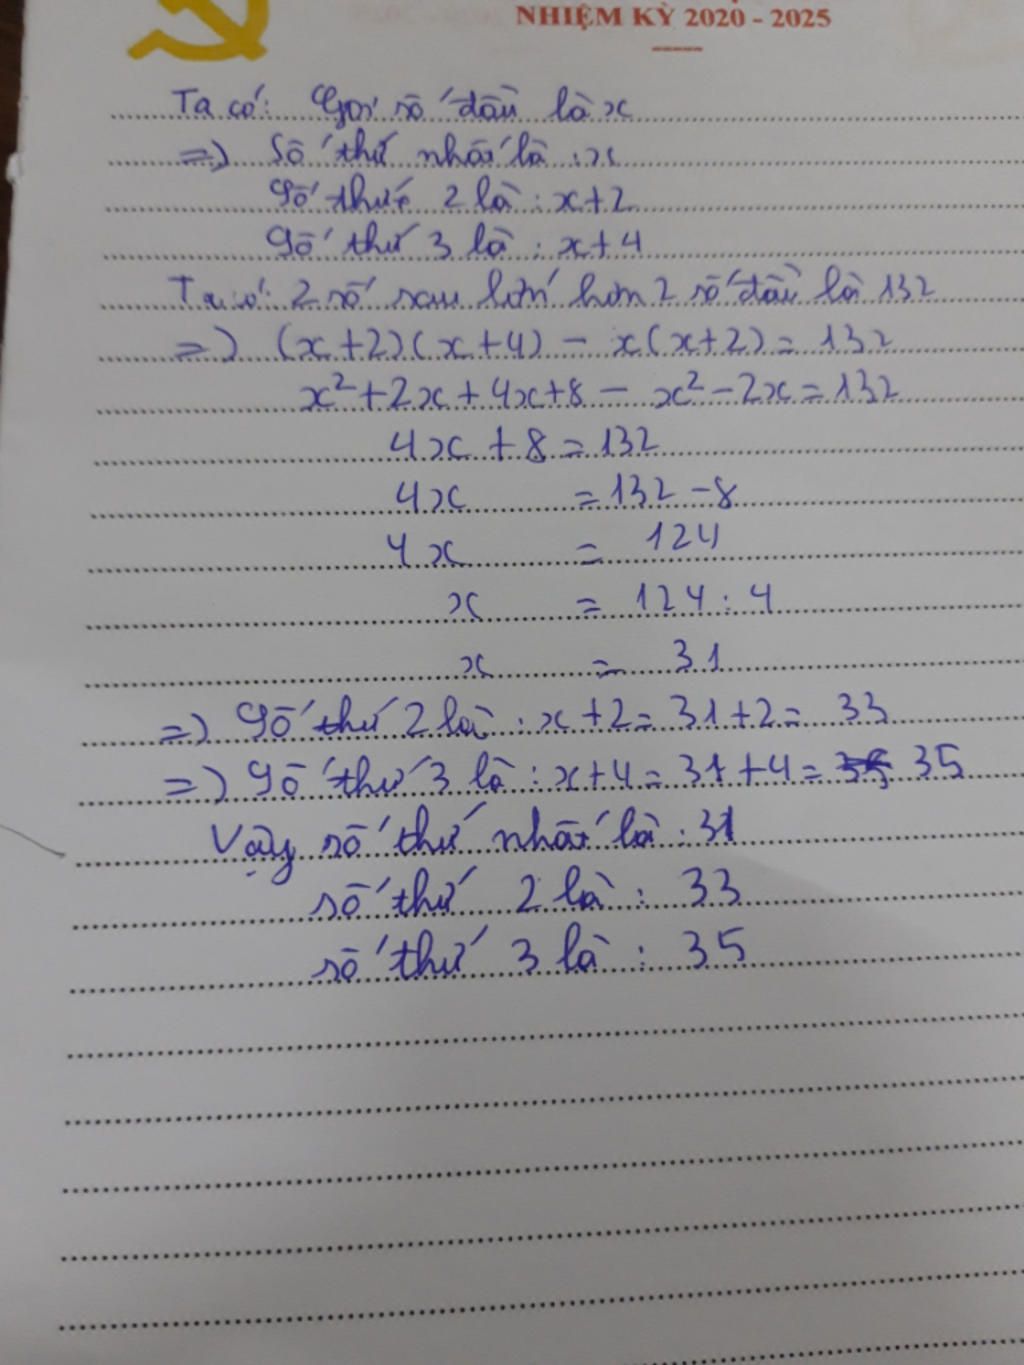 NHIỆM KỲ 2020 - 2025
Ta có: Gọi số đầu là x
=) Số thứ nhất là : x
Số thứ 2 là : x+2
Số thứ 3 là : x+4
Ta có: 2 số sau lớn hơn 2 số đầu là 132
=) (x+2)(x+4) - x(x+2) = 132
x²+2x+4x+8 - x²-2x=132
4x + 8 = 132
4x = 132 - 8
4x = 124
x = 124 : 4
x = 31
=) Số thứ 2 là : x+2= 31+2= 33
=) Số thứ 3 là : x+4= 31+4= 35
Vậy số thứ nhất là : 31
số thứ 2 là : 33
số thứ 3 là : 35